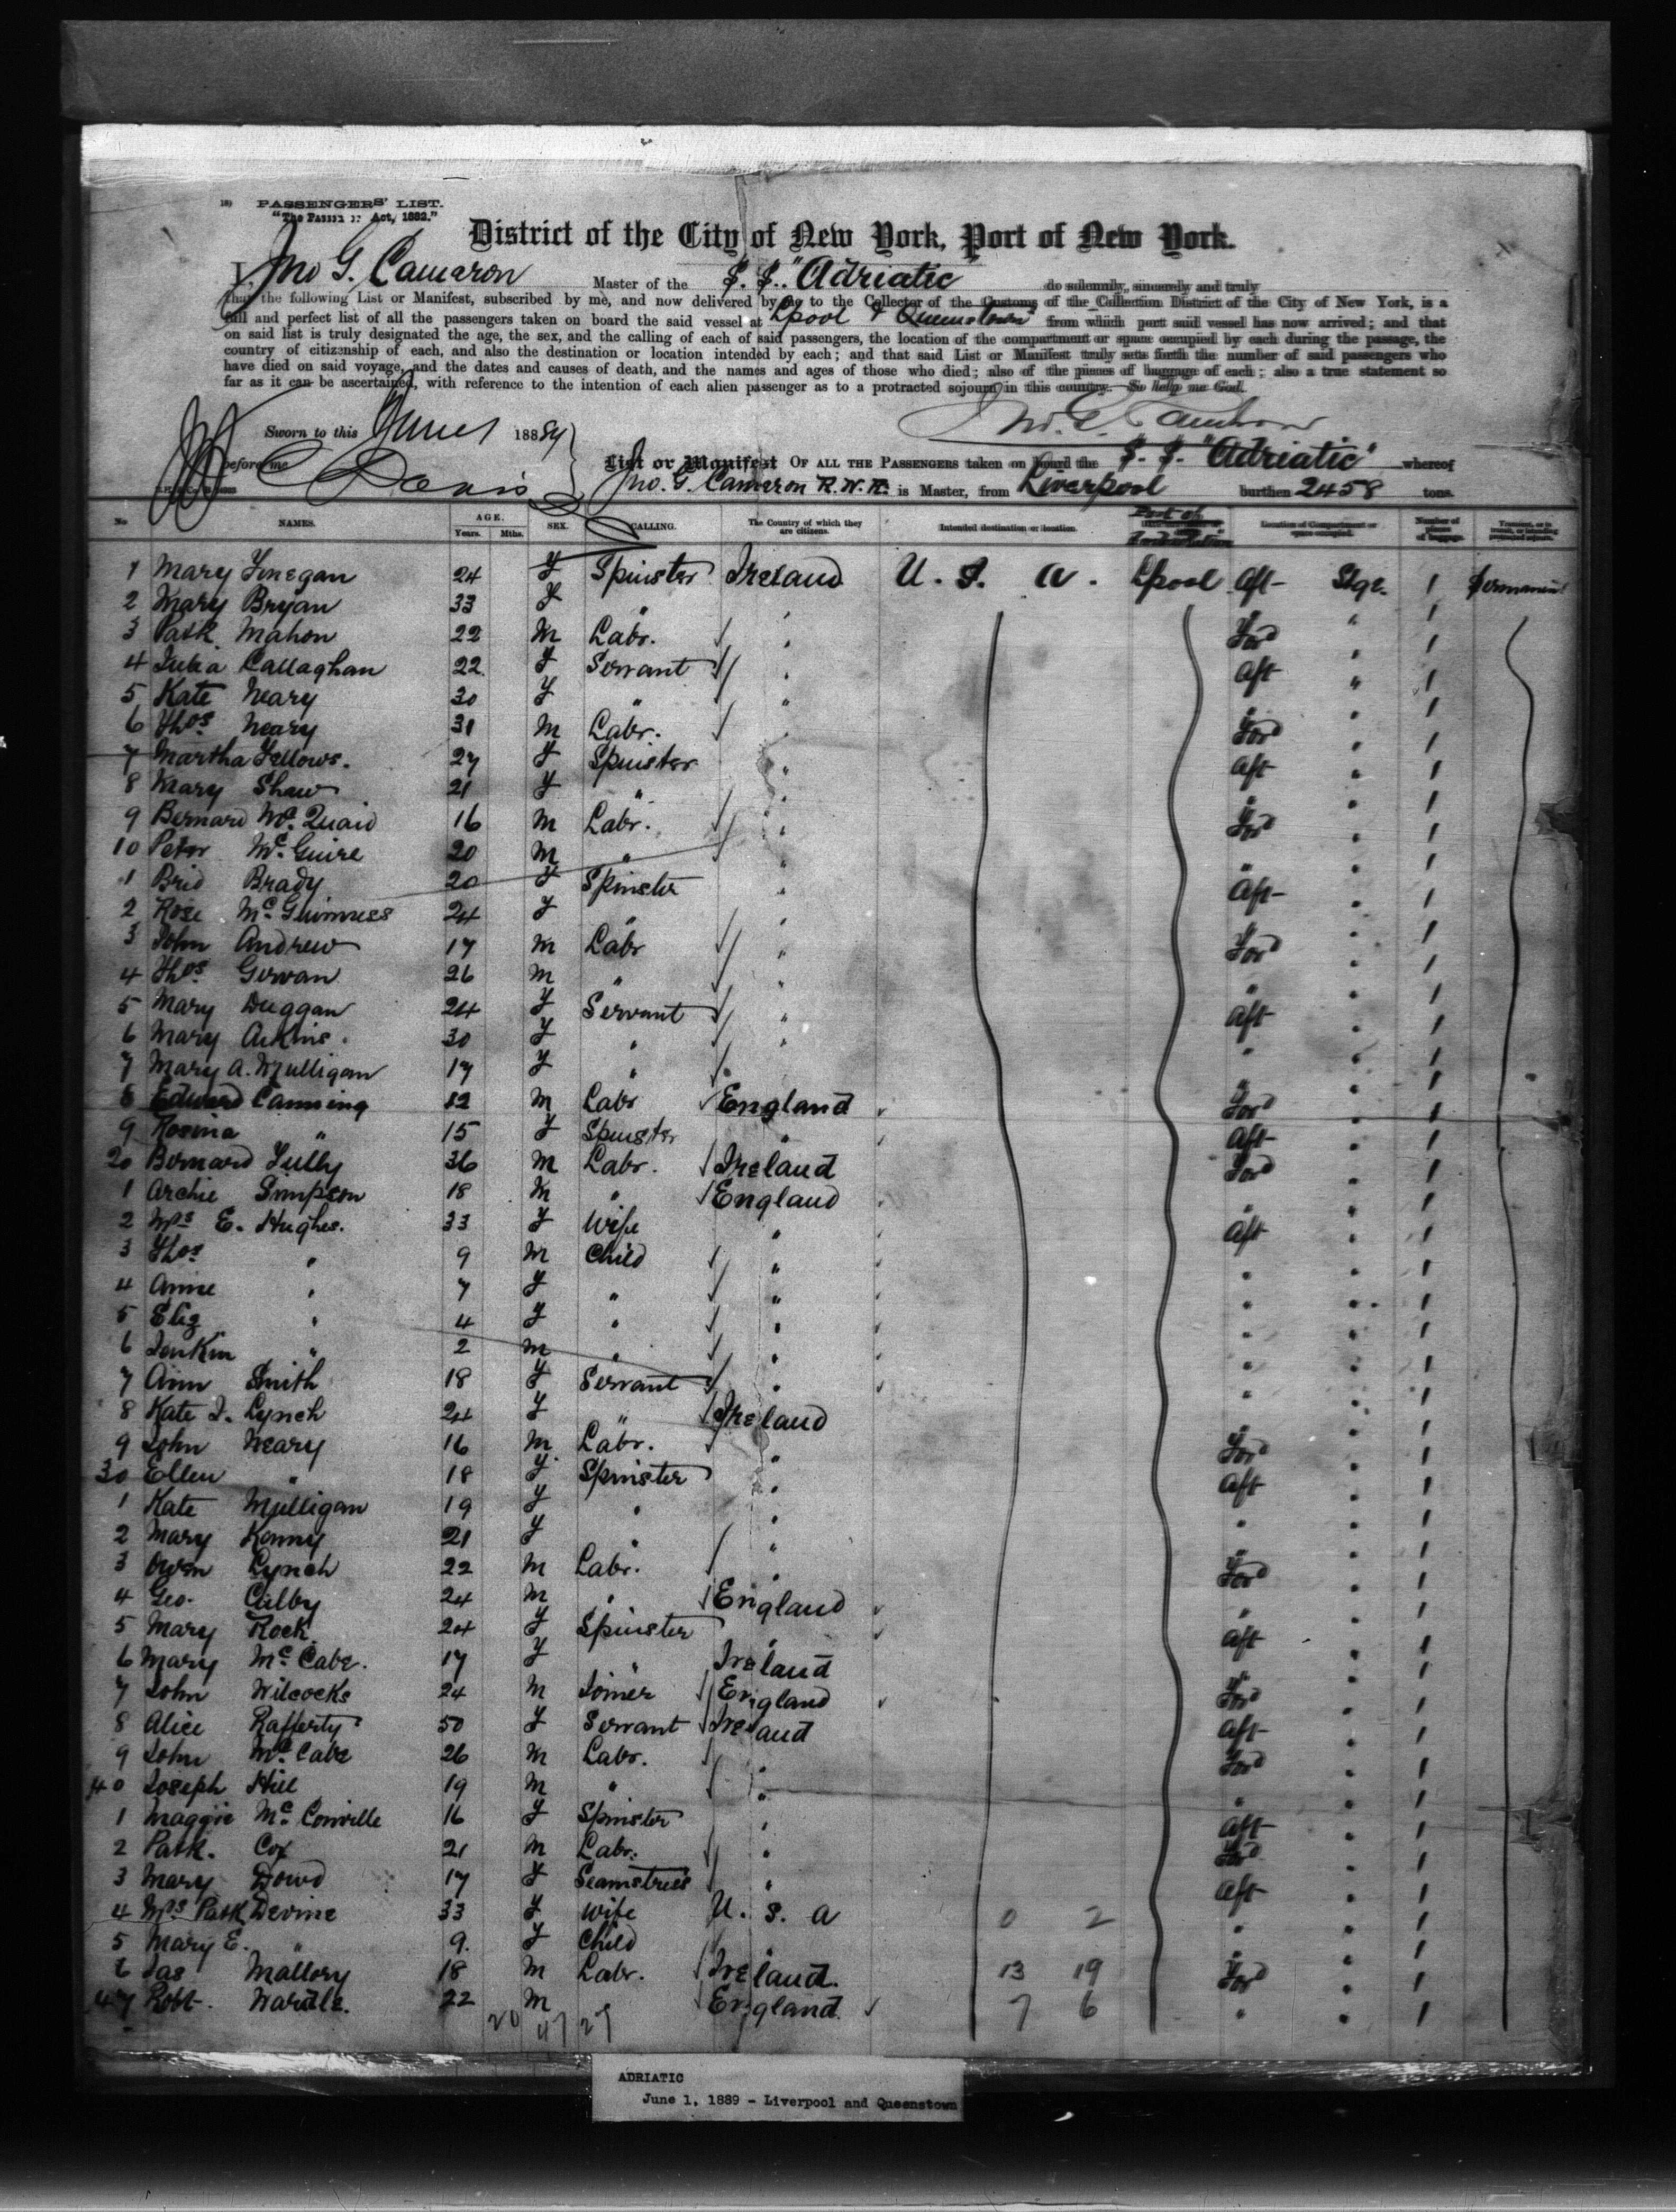 PASSENGERS' LIST.
Act, 1882."
District of the City of New York, Port of New York.
I, Jno G. Cameron Master of the S. S. "Adriatic" do solemnly, sincerely and truly
that the following List or Manifest, subscribed by me, and now delivered by me to the Collector of the Customs of the Collection District of the City of New York, is a
full and perfect list of all the passengers taken on board the said vessel at Lpool & Queenstown from which port said vessel has now arrived; and that
on said list is truly designated the age, the sex, and the calling of each of said passengers, the location of the compartment or space occupied by each during the passage, the
country of citizenship of each, and also the destination or location intended by each; and that said List or Manifest truly sets forth the number of said passengers who
have died on said voyage, and the dates and causes of death, and the names and ages of those who died; also of the pieces of baggage of each; also a true statement so
far as it can be ascertained, with reference to the intention of each alien passenger as to a protracted sojourn in this country. So help me God.
Sworn to this June 1 1889
before me
List or Manifest OF ALL THE PASSENGERS taken on board the S. S. "Adriatic" whereof
Jno. G. Cameron R.N.R. is Master, from Liverpool burthen 2458 tons.
No NAMES. AGE. Years. Mths. SEX. CALLING. The Country of which they are citizens. Intended destination or location. Port of Location of Compartment or space occupied. Number of pieces of baggage. Transient, or in transit, or intending protracted sojourn.
1 Mary Finegan 24 F Spinster Ireland U. S. A. Lpool Aft Stge. 1 Permanent
2 Mary Bryan 33 F " " " " 1
3 Patk. Mahon 22 M Labr. " Ford " 1
4 Julia Callaghan 22 F Servant " Aft " 1
5 Kate Neary 30 F " " " " 1
6 Thos Neary 31 M Labr. " Ford " 1
7 Martha Fellows. 27 F Spinster " Aft " 1
8 Mary Shaw 21 F " " " " 1
9 Bernard McQuaid 16 M Labr. " Ford " 1
10 Peter McGuire 20 M " " " " 1
1 Brid Brady 20 F Spinster " Aft " 1
2 Rose McGuinness 24 F " " " " 1
3 John Andrew 17 M Labr " Ford " 1
4 Thos Gowan 26 M " " " " 1
5 Mary Duggan 24 F Servant " Aft " 1
6 Mary 30 F " " " " 1
7 Mary A. Mulligan 17 F " " " " 1
8 Edward Canning M Labr England Ford " 1
9 Rosina " 15 F Spinster " Aft " 1
20 Bernard Tully 36 M Labr. Ireland Ford " 1
1 Archie Simpson 18 M " England " " 1
2 Mrs E. Hughes. 33 F Wife " Aft " 1
3 Thos " 9 M Child " " " 1
4 Annie " 7 F " " " " 1
5 Eliz " 4 F " " " " 1
6 Jenkin " 2 M " " " " 1
7 Ann Smith 18 F Servant " " " 1
8 Kate J. Lynch 24 F " Ireland " " 1
9 John Neary 16 M Labr. " Ford " 1
30 Ellen " 18 F Spinster " Aft " 1
1 Kate Mulligan 19 F " " " " 1
2 Mary Kenny 21 F " " " " 1
3 Owen Lynch 22 M Labr. " Ford " 1
4 Geo. 24 M " England " " 1
5 Mary Rock 24 F Spinster " Aft " 1
6 Mary McCabe. 17 F " Ireland " " 1
7 John Wilcocks 24 M Joiner England Ford " 1
8 Alice Rafferty 50 F Servant Ireland Aft " 1
9 John McCabe 26 M Labr. " Ford " 1
40 Joseph Hill 19 M " " " " 1
1 Maggie McConville 16 F Spinster " Aft " 1
2 Patk. Cox 21 M Labr. " Ford " 1
3 Mary Dowd 17 F Seamstress " Aft " 1
4 Mrs Patk Devine 33 F Wife U. S. A 0 2 " " 1
5 Mary E. " 9. F Child " " " 1
6 Jas Mallory 18 M Labr. Ireland. 13 19 Ford " 1
47 Robt. Wardle. 22 M " England. 7 6 " " 1
20 47 27
ADRIATIC
June 1, 1889 - Liverpool and Queenstown